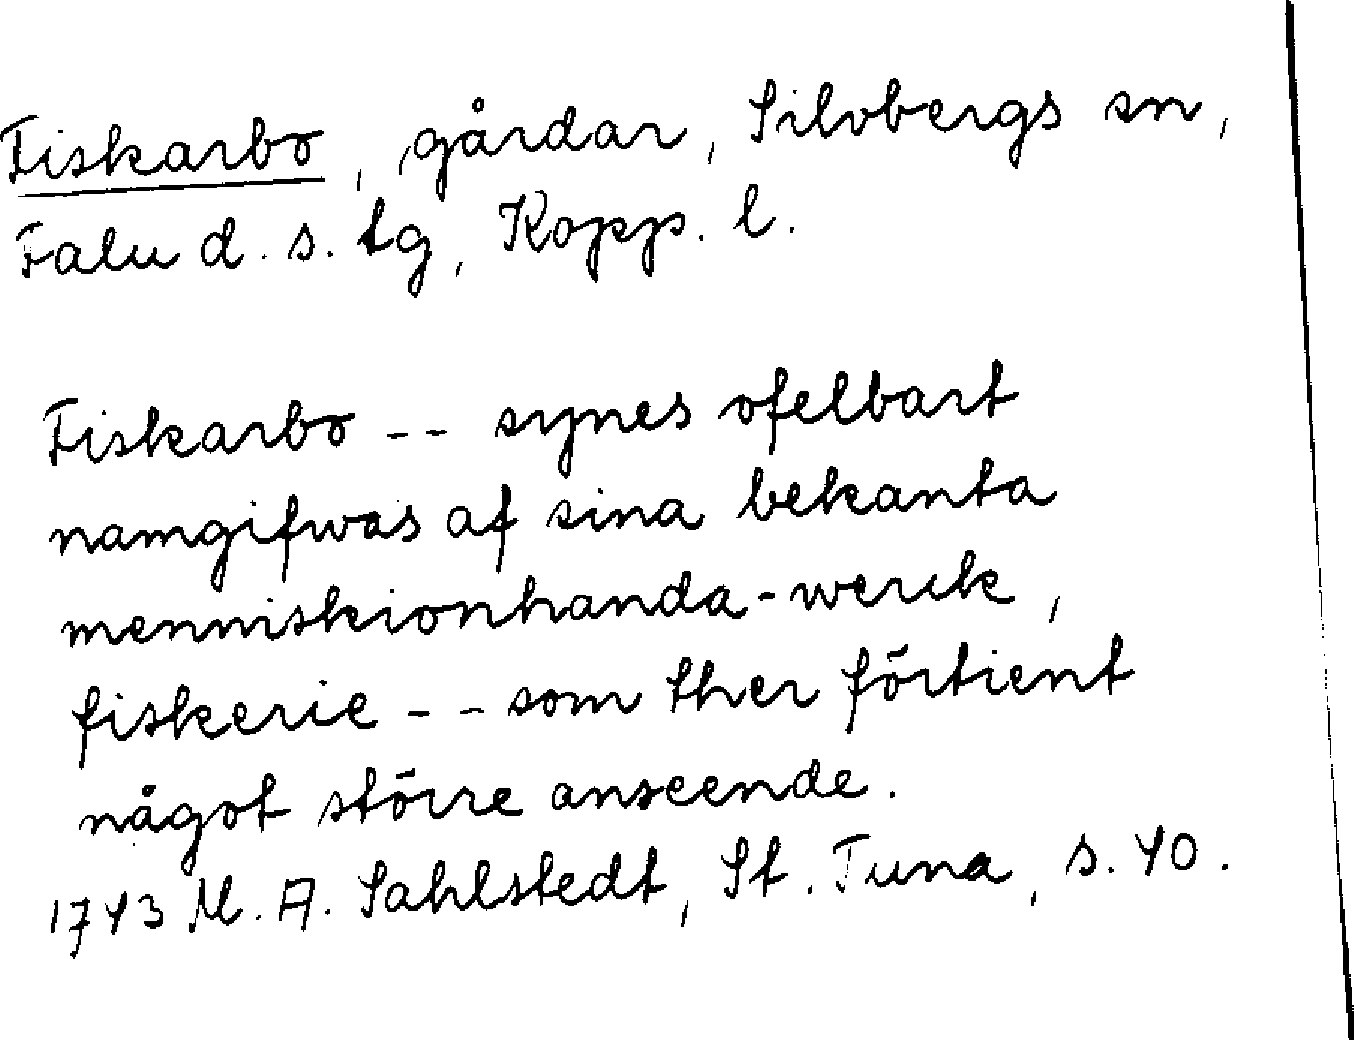 Fiskarbo, gårdar, Silvbergs sn,
Falu d. s. tg, Kopp. l.
Fiskarbo -- synes ofelbart
namgifwas af sina bekanta
menniskionhanda-werck,
fiskerie -- som ther förtient
något större anseende.
1743 M. A. Sahlstedt, St. Tuna, s. 40.